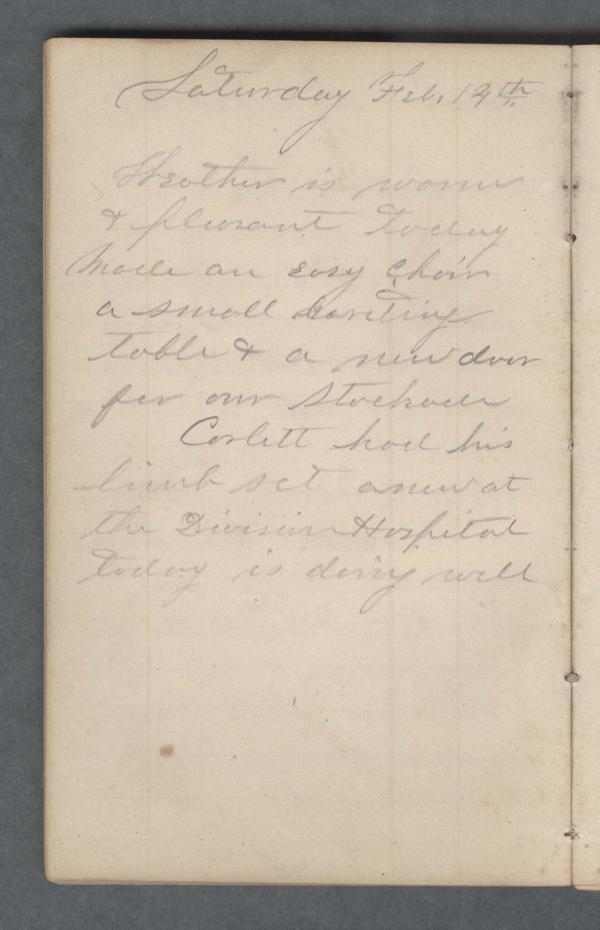 Saturday Feb. 13th
Weather is warm
& pleasant today
Made an easy chair
a small writing
table & a new door
for our stockade
Corlett had his
limb set anew at
the Division Hospital
today is doing well